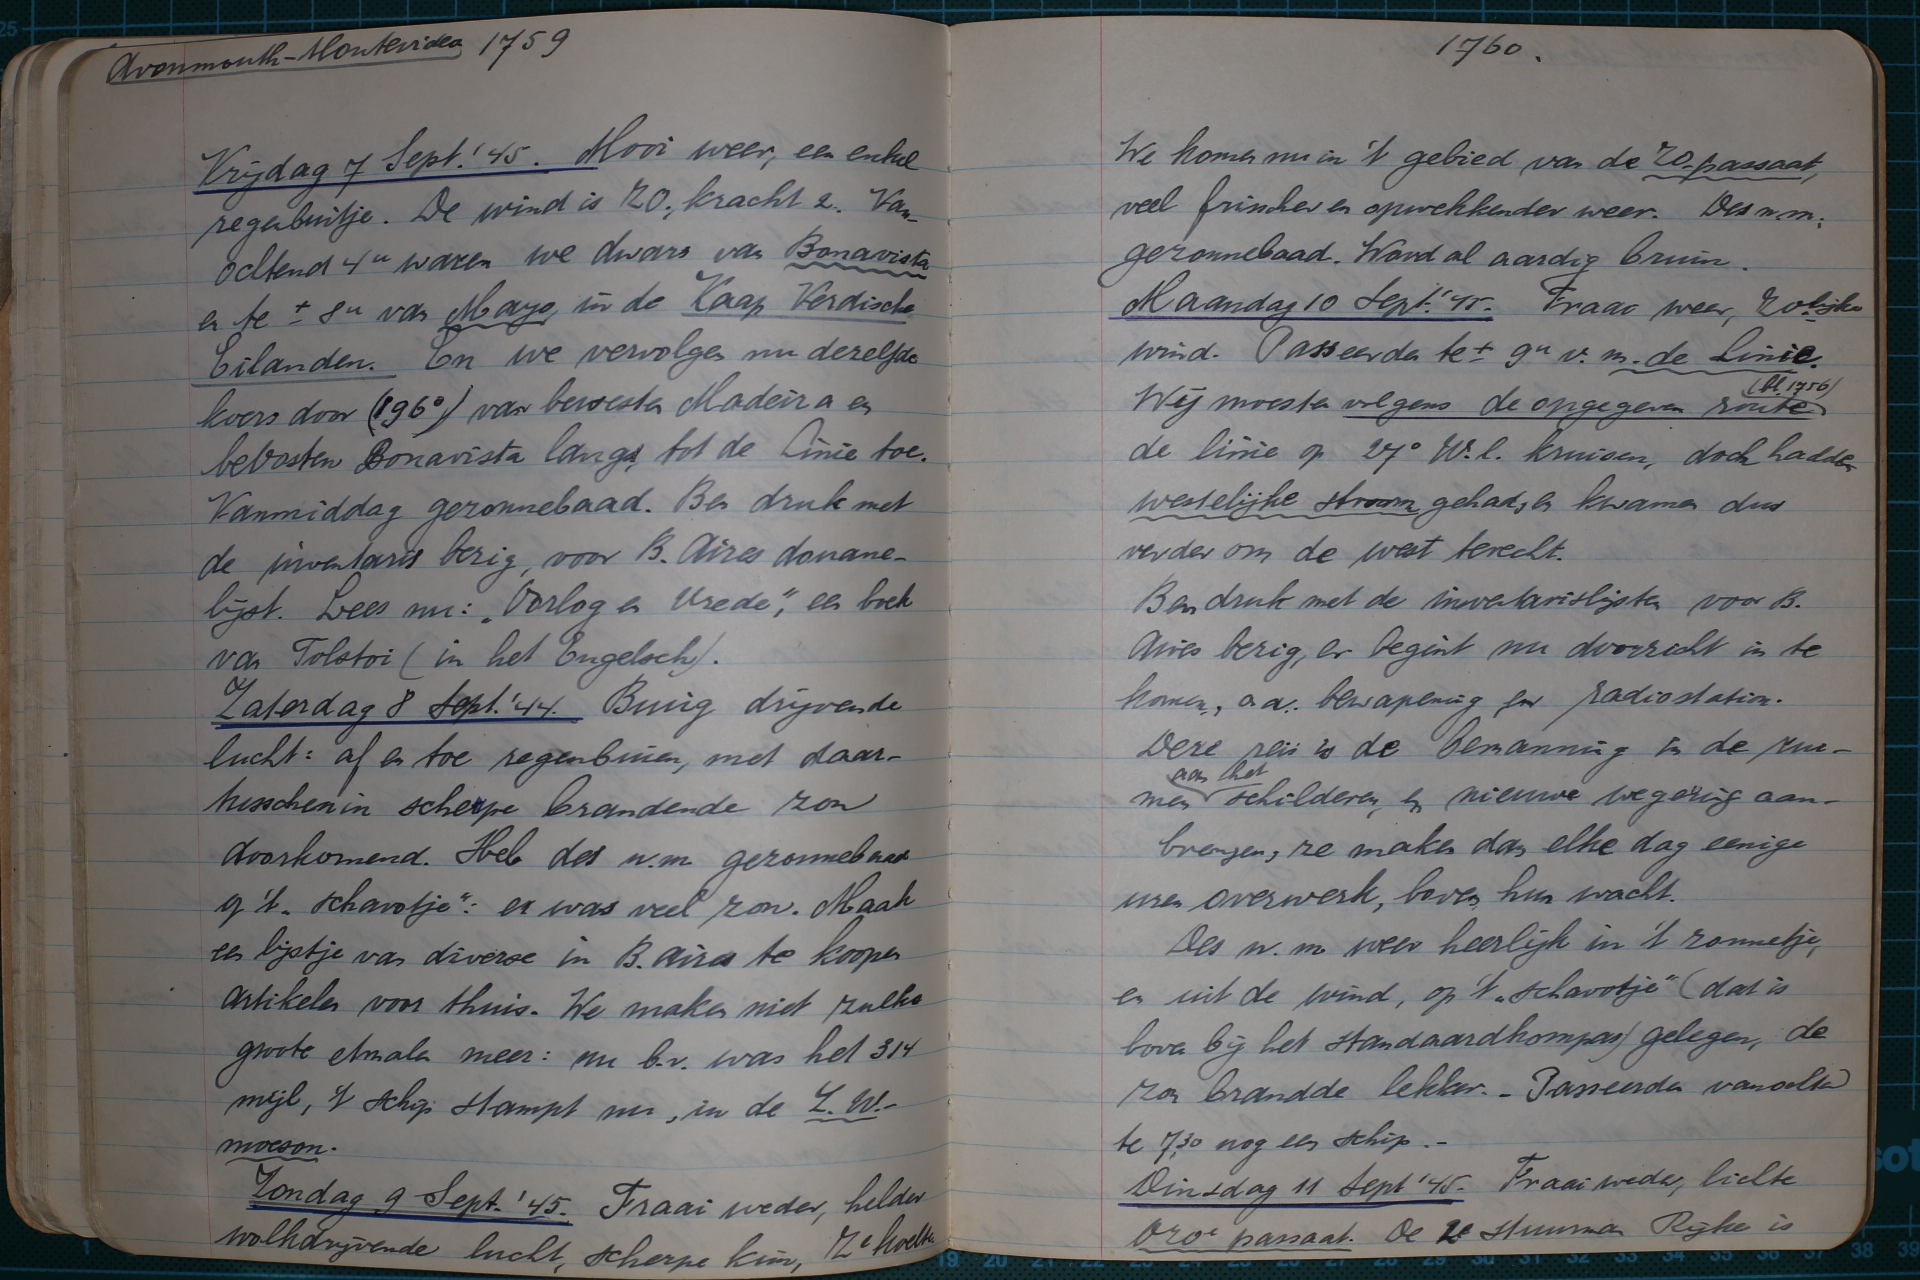 Avonmouth-Montevideo 1759
Vrijdag 7 Sept. '45. Mooi weer, een enkel
regenbuitje. De wind is ZO., kracht 2. Van-
ochtend 4u waren we dwars van Bonavista
en te ± 8u van Mayo, in de Kaap Verdische
Eilanden. En we vervolgen nu dezelfde
koers door (196°) van bewesten Madeira en
beoosten Bonavista langs, tot de Linie toe.
Vanmiddag gezonnebaad. Ben druk met
de inventaris bezig, voor B. Aires douane-
lijst. Lees nu: „Oorlog en Vrede", een boek
van Tolstoi (in het Engelsch).
Zaterdag 8 Sept. '44. Buiig drijvende
lucht: af en toe regenbuien, met daar-
tusschenin scherpe brandende zon
doorkomend. Heb des n.m. gezonnebaad
op 't „schavotje": er was veel zon. Maak
een lijstje van diverse in B. Aires te koopen
artikelen voor thuis. We maken niet zulke
groote etmalen meer: nu b.v. was het 314
mijl, 't schip stampt nu, in de Z.W.-
moeson.
Zondag 9 Sept. '45. Fraai weder, helder
wolkdrijvende lucht, scherpe kim, Ze koelte
1760.
We komen nu in 't gebied van de ZO-passaat,
veel frisscher en opwekkender weer. Des n.m.
gezonnebaad. Word al aardig bruin.
Maandag 10 Sept. '45. Fraai weer, ZOlijke
wind. Passeerden te ± 9u v.m. de Linie.
(bl. 1756)
Wij moesten volgens de opgegeven route
de linie op 27° W.l. kruisen, doch hadden
westelijke stroom gehad, en kwamen dus
verder om de west terecht.
Ben druk met de inventarislijsten voor B.
Aires bezig, er begint nu doorzicht in te
komen, o.a. bewapening en radiostation.
Deze reis is de bemanning in de rui-
aan het
men schilderen, en nieuwe wegering aan-
brengen, ze maken dan elke dag eenige
uren overwerk, boven hun wacht.
Des n.m. weer heerlijk in 't zonnetje,
en uit de wind, op 't „schavotje" (dat is
boven bij het standaardkompas) gelegen, de
zon brandde lekker. - Passeerden vanochtend
te 7.30 nog een schip. -
Dinsdag 11 Sept '45. Fraai weder, lichte
OZOe passaat. De 2e stuurman Rijke is